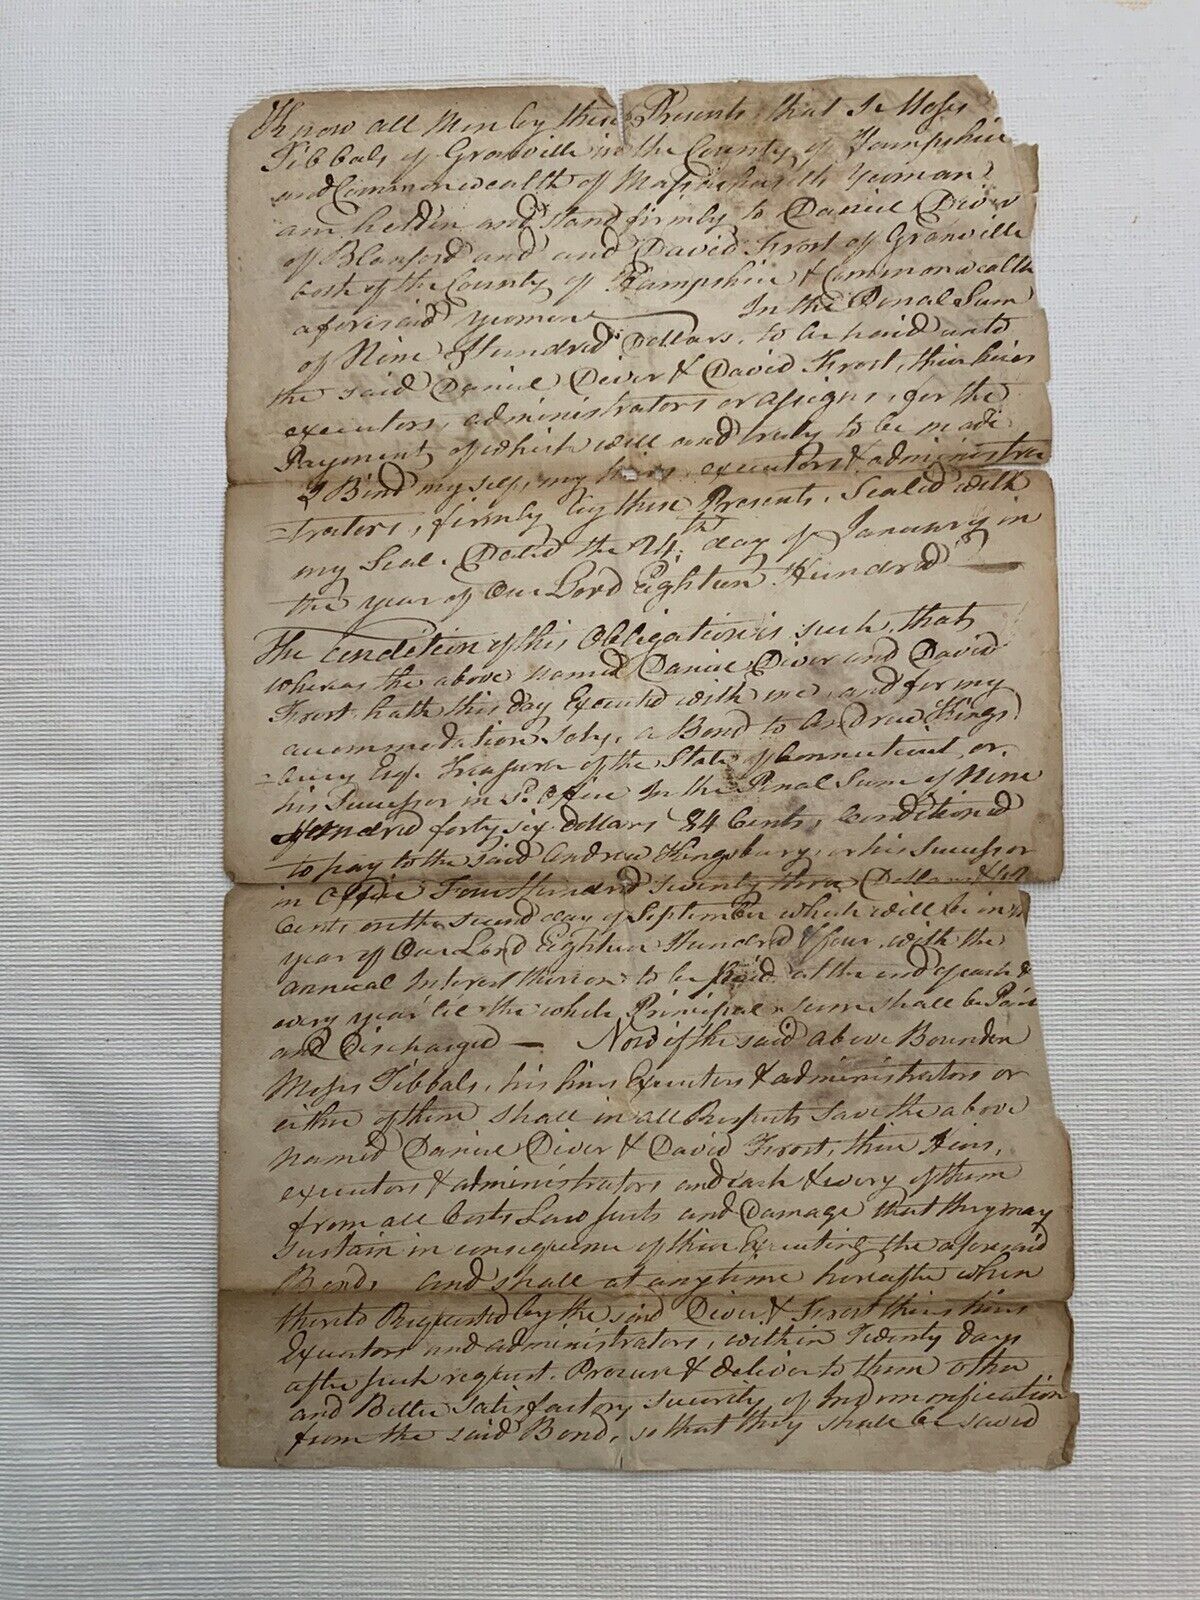 Know all Men by these Presents that I Moses
Tibbals of Granville in the County of Hampshire
and Commonwealth of Massachusetts Yeoman
am holden and stand firmly to Daniel Diver
of Blanford and and David Frost of Granville
both of the County of Hampshire & Commonwealth
aforesaid yeomen In the Penal Sum
of Nine Hundred Dollars, to be paid unto
the said Daniel Diver & David Frost, their heirs
executors, administrators or assigns, for the
Payment of which well and truly to be made
I Bind myself, my heirs executors & adminis
=trators, firmly by these Presents, Sealed with
my Seal. Dated the 24th day of January in
the year of Our Lord Eighteen Hundred
The Condition of this Obligation is such, that
whereas the above named Daniel Diver and David
Frost hath this day Executed with me, and for my
accommodation soly, a Bond to Andrew Kings
=bury Esqr. Treasurer of the State of Connecticut, or
his Successor in sd. office In the Penal Sum of Nine
Hundred forty six dollars 84 Cents, Conditioned
to pay to the said Andrew Kingsbury, or his Successor
in Office Four Hundred seventy three Dollars & 42
Cents on the second day of September which will be in
year of Our Lord Eighteen Hundred & four, with the
annual Interest thereon to be Paid at the end of each &
every year til the whole Principal sum shall be Paid
and Discharged — Now if the said above Bounden
Moses Tibbals, his heirs Executors & administrators or
either of them shall in all Respects Save the above
named Daniel Diver & David Frost, their Heirs,
executors & administrators and each & every of them
from all Costs Law suits and Damage that they may
sustain in consequence of their Executing the aforesaid
Bond, and shall at any time hereafter when
thereto Requested by the said Diver & Frost their heirs
Executors and administrators, within Twenty days
after such request, Procure & deliver to them other
and Better Satisfactory security of Indemnification
from the said Bond, so that they shall be saved